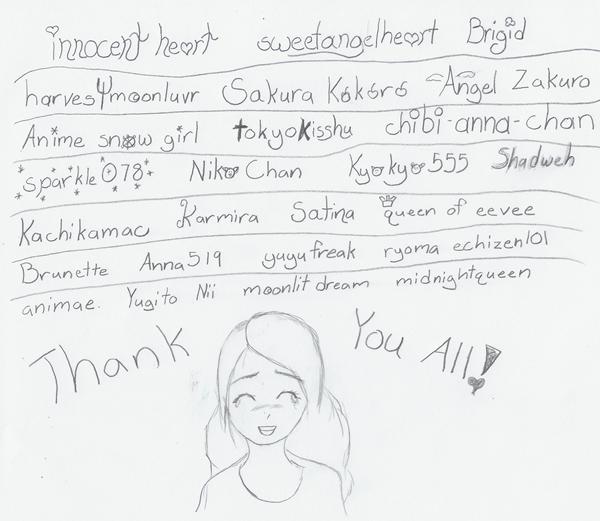 innocent heart sweetangelheart Brigid
harvestmoonluvr Sakura Kokoro Angel Zakuro
Anime snow girl tokyokisshu chibi-anna-chan
sparkle078 Niko Chan Kyokyo555 Shadweh
Kachikamac Karmira Satina queen of eevee
Brunette Anna519 yuyufreak ryoma echizen101
animae. Yugito Nii moonlit dream midnightqueen
Thank You All!